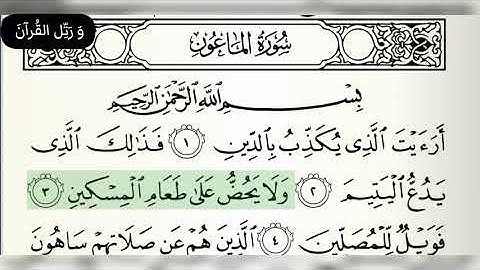 وَ رَتِّلِ القُرآنَ
سُورَةُ المَاعُونِ
بِسْمِ اللَّهِ الرَّحْمَٰنِ الرَّحِيمِ
أَرَءَيْتَ الَّذِى يُكَذِّبُ بِالدِّينِ ١ فَذَٰلِكَ الَّذِى
يَدُعُّ الْيَتِيمَ ٢ وَلَا يَحُضُّ عَلَىٰ طَعَامِ الْمِسْكِينِ ٣
فَوَيْلٌ لِّلْمُصَلِّينَ ٤ الَّذِينَ هُمْ عَن صَلَاتِهِمْ سَاهُونَ